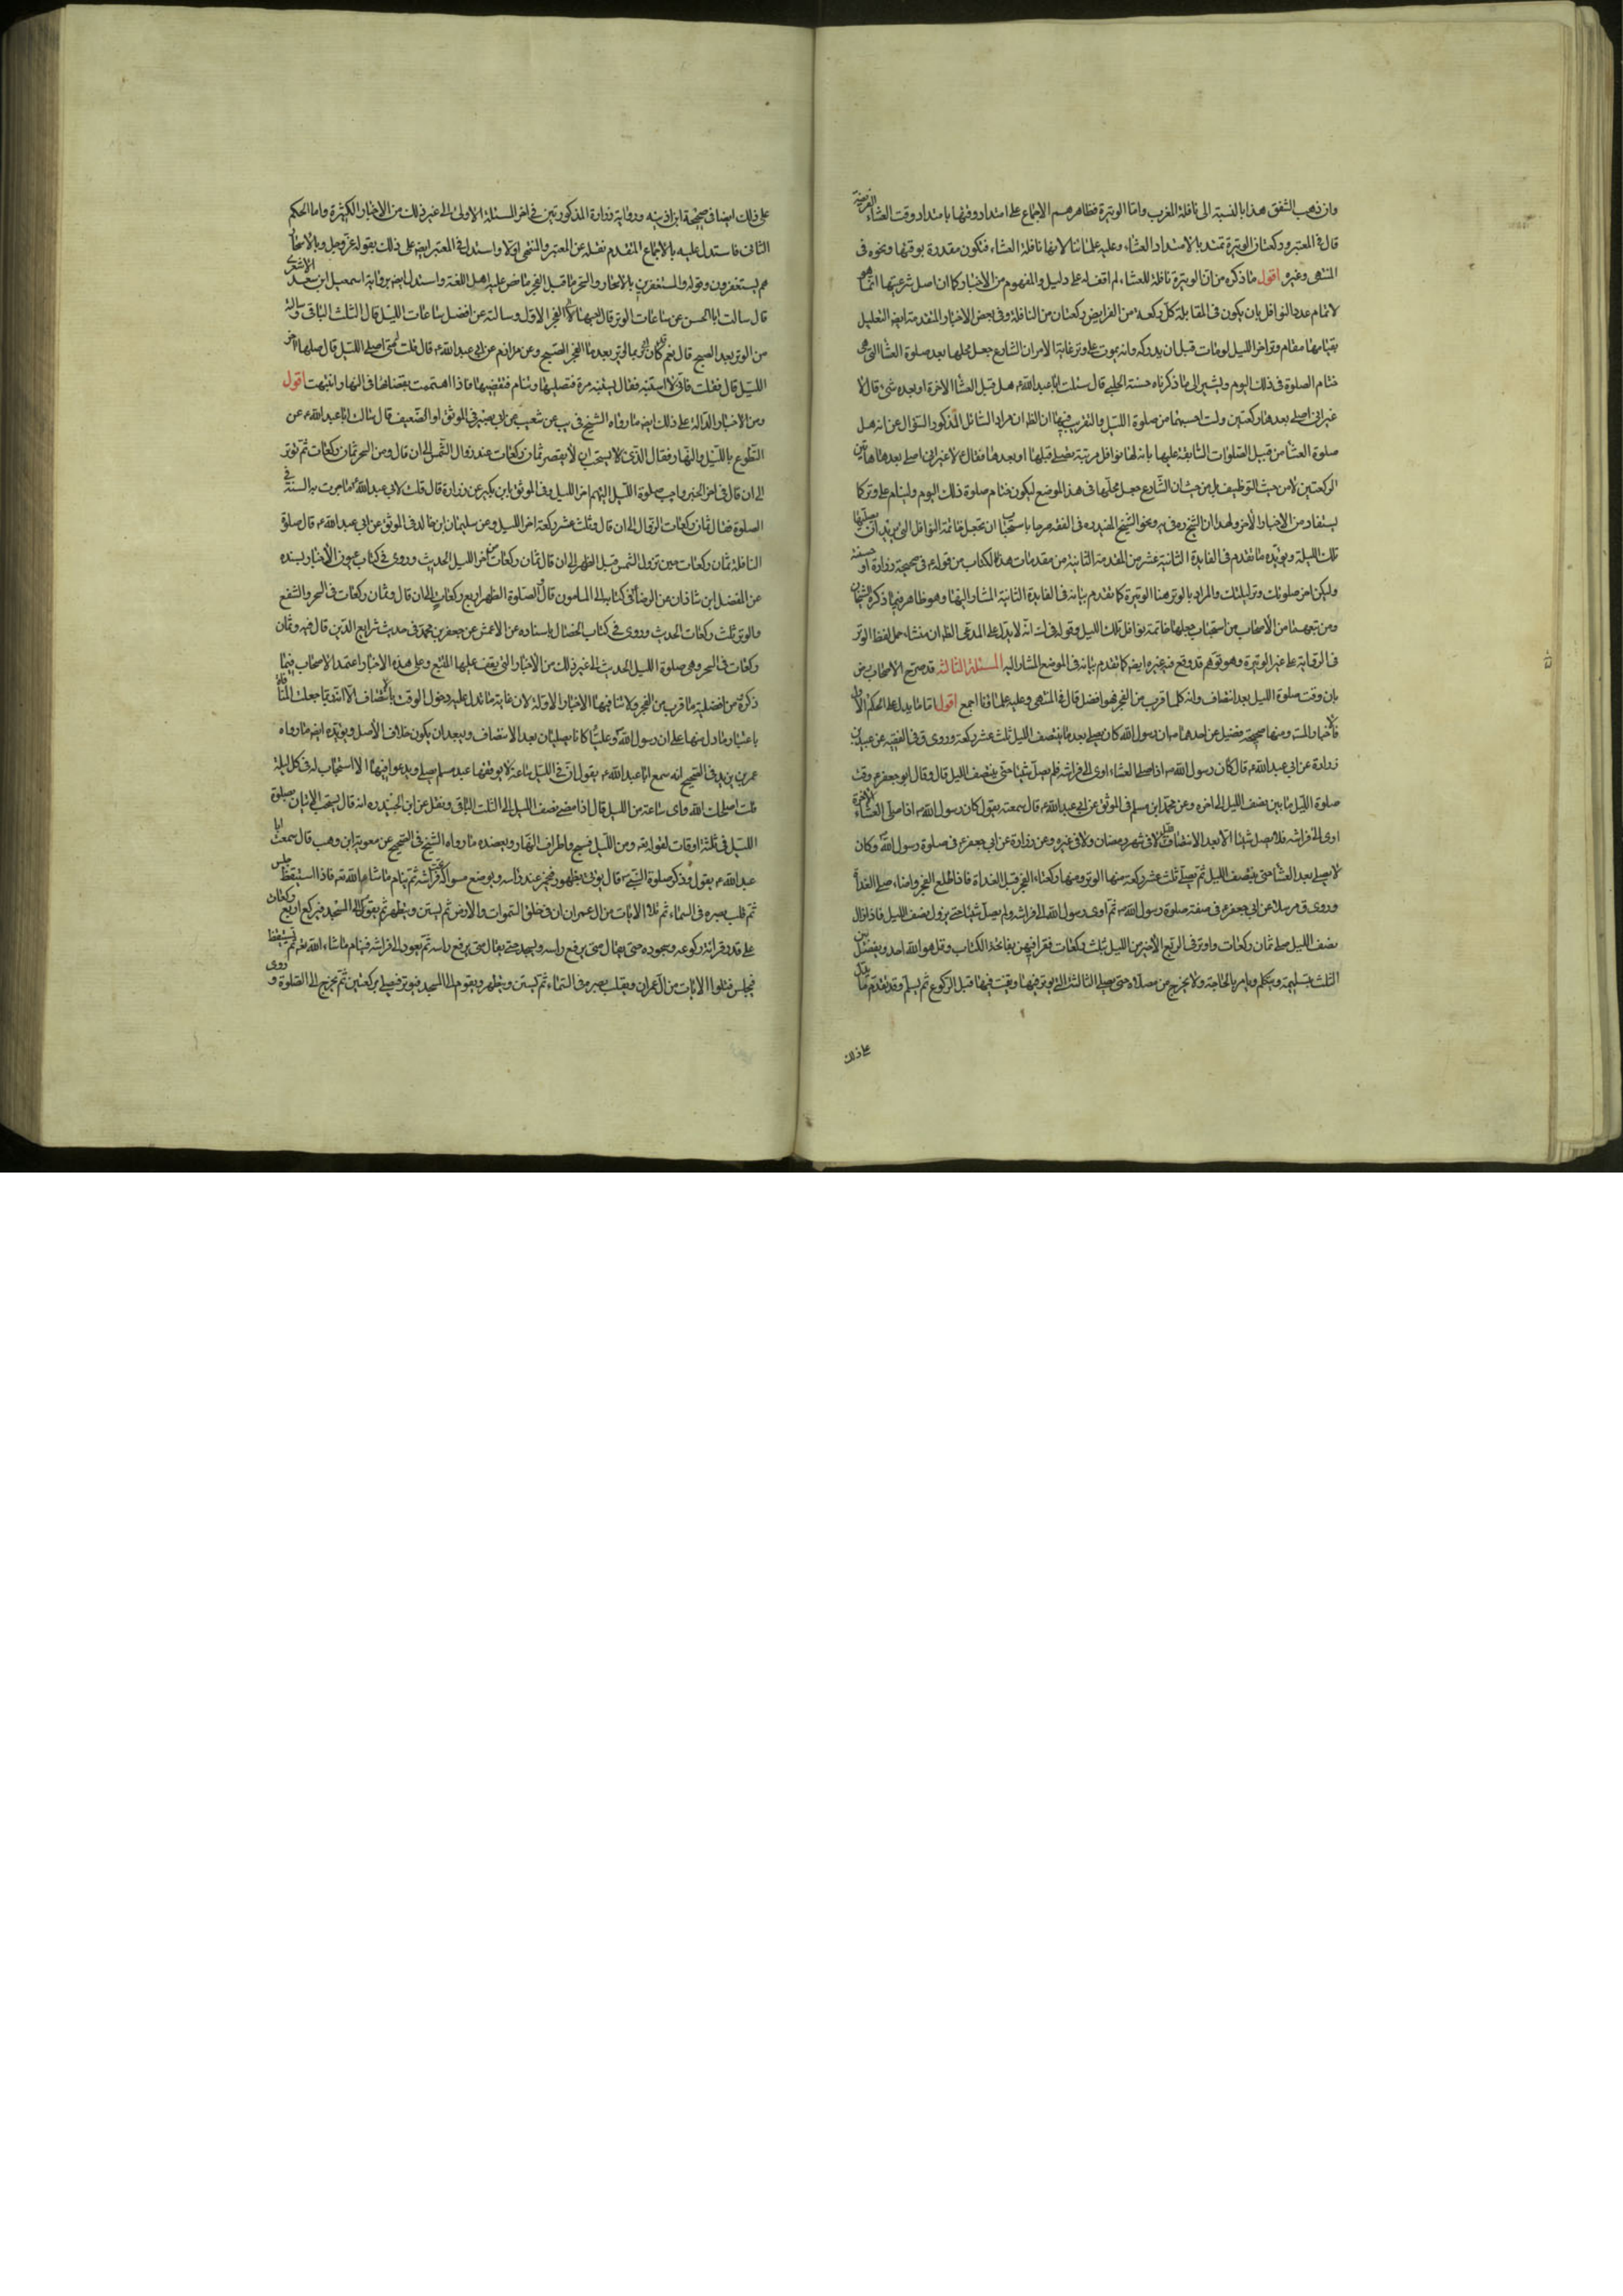 وان ذهب الشفق هذا بالنسبة الى نافلة المغرب واما الوتيرة فظاهرهم الاجماع على امتداد وقتها بامتداد وقت العشاء الفريضة
قال في المعتبر وركعتا الوتيرة تمتد بالامتداد العشاء وعليه علمائنا لانها نافلة العشاء فتكون مقدرة بوقتها ونحوه في
المنتهى وغيره اقول ما ذكره من ان الوتيرة نافلة للعشاء لم اقف له على دليل والمفهوم من الاخبار كما ان اصل شرعيتها انما هو
لاتمام عدد النوافل بان يكون في المقابلة كل ركعة من الفرايض ركعتان من النافلة وفي بعض الاخبار المتقدمة ايضا التعليل
بقيامها مقام وتر اخر الليل لو مات قبل ان يدركه وانه يموت على وتر غاية الامر ان الشارع جعل محلها بعد صلوة العشاء التي هي
ختام الصلوة في ذلك اليوم ويشير الى ما ذكرناه حسنة الحلبي قال سئلت ابا عبد الله ع هل قبل العشاء الاخرة او بعده شيء قال لا
غير اني اصلي بعدها ركعتين ولست احسبهما من صلوة الليل والتقريب فيها ان الظ ان مراد السائل المذكور السؤال عن انه هل
صلوة العشاء من قبيل الصلوات السابقة عليها بانه لها نوافل مرتبة يصلى قبلها او بعدها فقال ع لا غير اني اصلي بعدها هاتين
الركعتين لا من حيث التوظيف بل من حيث ان الشارع جعل محلها في هذا الموضع ليكون ختام صلوة ذلك اليوم ولينام على وتر كما
يستفاد من الاخبار الاخر ولهذا ان الشيخ ره في يه ونحو الشيخ المفيد ره في المقنعه صرحا باستحباب ان تجعل خاتمة النوافل التي يريد ان يصليها
تلك الليلة ويؤيده ما تقدم في الفايدة الثانية عشر من المقدمة الثانية من مقدمات هذه الكتاب من قوله ع في صحيحة زرارة او حسنته
وليكن اخر صلوتك وتر ليلتك والمراد بالوتر هنا الوتيرة كما تقدم بيانه في الفايدة الثانية المشار اليها وهو ظاهر فيما ذكره الشيخان
ومن تبعهما من الاصحاب من استحباب جعلها خاتمة نوافل تلك الليل وقوله في لك انه لا يدل على المدعى الظ ان منشاه حمل لفظ الوتر
في الرواية على غير الوتيرة وهو توهم قد وقع فيه غيره ايضا كما تقدم بيانه في الموضع المشار اليه المسئلة الثالثة قد صرح الاصحاب رض
بان وقت صلوة الليل بعد انتصاف وانه كلما قرب من الفجر فهو افضل قال في المنتهى وعليه علمائنا اجمع اقول اما ما يدل على الحكم الاول
فاخبار المسئلة ومنها صحيحة فضيل عن احدهما ع ان رسول الله ص كان يصلي بعد ما ينتصف الليل ثلث عشر ركعة وروى في الفقيه عن عبيد بن
زرارة عن ابي عبد الله ع قال كان رسول الله ص اذا صلى العشاء اوى الى فراشه فلم يصل شيئا حتى ينتصف الليل قال وقال ابو جعفر ع وقت
صلوة الليل ما بين نصف الليل الى اخره وعن محمد ابن مسلم في الموثق عن ابي عبد الله ع قال سمعته يقول كان رسول الله ص اذا صلى العشاء الاخرة
اوى الى فراشه فلا يصل شيئا الا بعد الانتصاف الليل لا في شهر رمضان ولا في غيره وعن زرارة عن ابي جعفر ع في صلوة رسول الله ص وكان
لا يصلي بعد العشاء حتى ينتصف الليل ثم يصلي ثلث عشر ركعة منها الوتر ومنها ركعتا الفجر قبل الغداة فاذا طلع الفجر واضاء صلى الغداة
وروى في مرسلا عن ابي جعفر ع في صفة صلوة رسول الله ص ثم اوى رسول الله الى فراشه ولم يصل شيئا حتى يزول نصف الليل فاذا زال
نصف الليل صلى ثمان ركعات واوتر في الربع الاخير من الليل بثلث ركعات فقرا فيهن بفاتحة الكتاب وقل هو الله احد ويفصل بين
الثلث بتسليمة ويتكلم ويامر بالحاجة ولا يخرج من مصلاه حتى يصلي الثالثة التي يوتر فيها ويقنت فيها قبل الركوع ثم يسلم وقد تقدم ما يدل
على ذلك
على ذلك ايضا في صحيحة ابن اذينه ورواية زرارة المذكورتين في اخر المسئلة الاولى الى غير ذلك من الاخبار الكثيرة واما الحكم
الثاني فاستدل عليه بالاجماع المتقدم نقله عن المعتبر والمنتهى اولا واستدل في المعتبر ايضا على ذلك بقوله عز وجل وبالاسحار
هم يستغفرون وقوله والمستغفرين بالاسحار والسحر ما قبل الفجر نص عليه اهل اللغة واستدل ايضا برواية اسمعيل ابن سعد الاشعري
قال سالت ابا الحسن عن ساعات الوتر قال احبها الى الفجر الاول وسالته عن افضل ساعات الليل قال الثلث الباقي وسالته
من الوتر بعد الصبح قال نعم كان ابي ربما اوتر بعد ما الفجر الصبح وعن مرازم عن ابي عبد الله ع قال قلت متى اصلي الليل قال صلها اخر
الليل قال فقلت فاني لا استنبه فقال تستنبه مرة فتصليها وتنام فتقضيها فاذا اهتممت بقضاها في النهار وانتبهت اقول
ومن الاخبار الدالة على ذلك ايضا ما رواه الشيخ في يب عن شعيب عن ابي بصير في الموثق او الضعيف قال سالت ابا عبد الله ع عن
التطوع بالليل والنهار فقال الذي لا يستحب ان لا يقصر ثمان ركعات عند زوال الشمس الى ان قال ومن السحر ثمان ركعات ثم يوتر
الى ان قال في اخر الخبر واحب صلوة الليل اليهم اخر الليل وفي الموثق بابن بكير عن زرارة قال قلت لابي عبد الله ع ما جرت به السنة في
الصلوة فقال ثمان ركعات الزوال الى ان قال وثلث عشر ركعة اخر الليل وعن سليمان ابن خالد في الموثق عن ابي عبد الله ع قال صلوة
النافلة ثمان ركعات حين تزول الشمس قبل الظهر الى ان قال ثمان ركعات من اخر الليل الحديث وروى في كتاب عيون الاخبار بسنده
عن الفضل ابن شاذان عن الرضا ع في كتابه الى المامون قال الصلوة الظهر اربع ركعات الى ان قال وثمان ركعات في السحر والشفع
والوتر ثلث ركعات الحديث وروى في كتاب الخصال باسناده عن الاعمش عن جعفر بن محمد في حديث شرايع الدين قال فيه وثمان
ركعات في السحر وهي صلوة الليل الحديث الى غير ذلك من الاخبار التي يقف عليها المتتبع وعلى هذه الاخبار اعتمد الاصحاب فيما
ذكره من افضلية ما قرب من الفجر ولا تنافيها الاخبار الاولة لان غاية ما تدل عليه دخول الوقت بانتصاف الا انه ربما جعلت المنافاة
باعتبار ما دل منها على ان رسول الله ص وعليا كانا يصليان بعد الانتصاف ويبعد ان يكون خلاف الافضل ويؤيده ايضا ما رواه
عمر بن يزيد في الصحيح انه سمع ابا عبد الله ع يقول ان في الليل ساعة لا يوافقها عبد مسلم يصلي ويدعو فيها الا استجاب له في كل ليلة
قلت اصلحك الله فاي ساعة من الليل قال اذا مضى نصف الليل الى الثلث الباقي ونقل عن ابن الجنيد ره انه قال يستحب الاتيان بصلوة
الليل في ثلثة اوقات لقوله تع ومن الليل فسبح واطراف النهار ويعضده ما رواه الشيخ في الصحيح عن معوية ابن وهب قال سمعت ابا
عبد الله ع يقول وذكر صلوة النبي ص قال يؤتى بطهور فيخمر عند راسه ويوضع سواكه تحت فراشه ثم ينام ما شاء الله تع فاذا استيقظ جلس
ثم قلب بصره في السماء ثم تلا الايات من ال عمران ان في خلق السموات والارض ثم يستن ويتطهر ثم يقوم الى المسجد فيركع اربع ركعات
على قدر قرائته ركوعه وسجوده حتى يقال متى يرفع راسه ويسجد حتى يقال متى يرفع راسه ثم يعود الى فراشه فينام ما شاء الله تع ثم يستيقظ
فيجلس فيتلوا الايات من ال عمران ويقلب بصره في السماء ثم يستن ويتطهر ويقوم الى المسجد فيوتر فيصلي الركعتين ثم يخرج الى الصلوة وروى